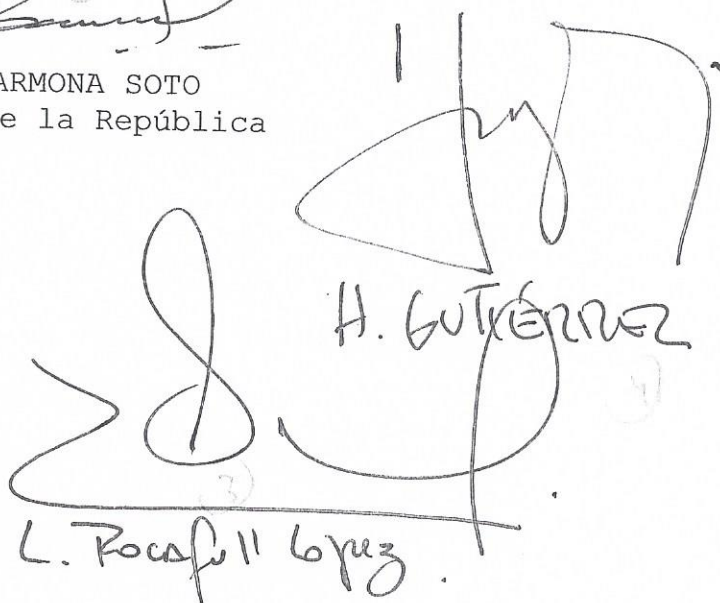 ARMONA SOTO
e la República
H. GUTIÉRREZ
4
3
L. Rocafull López.